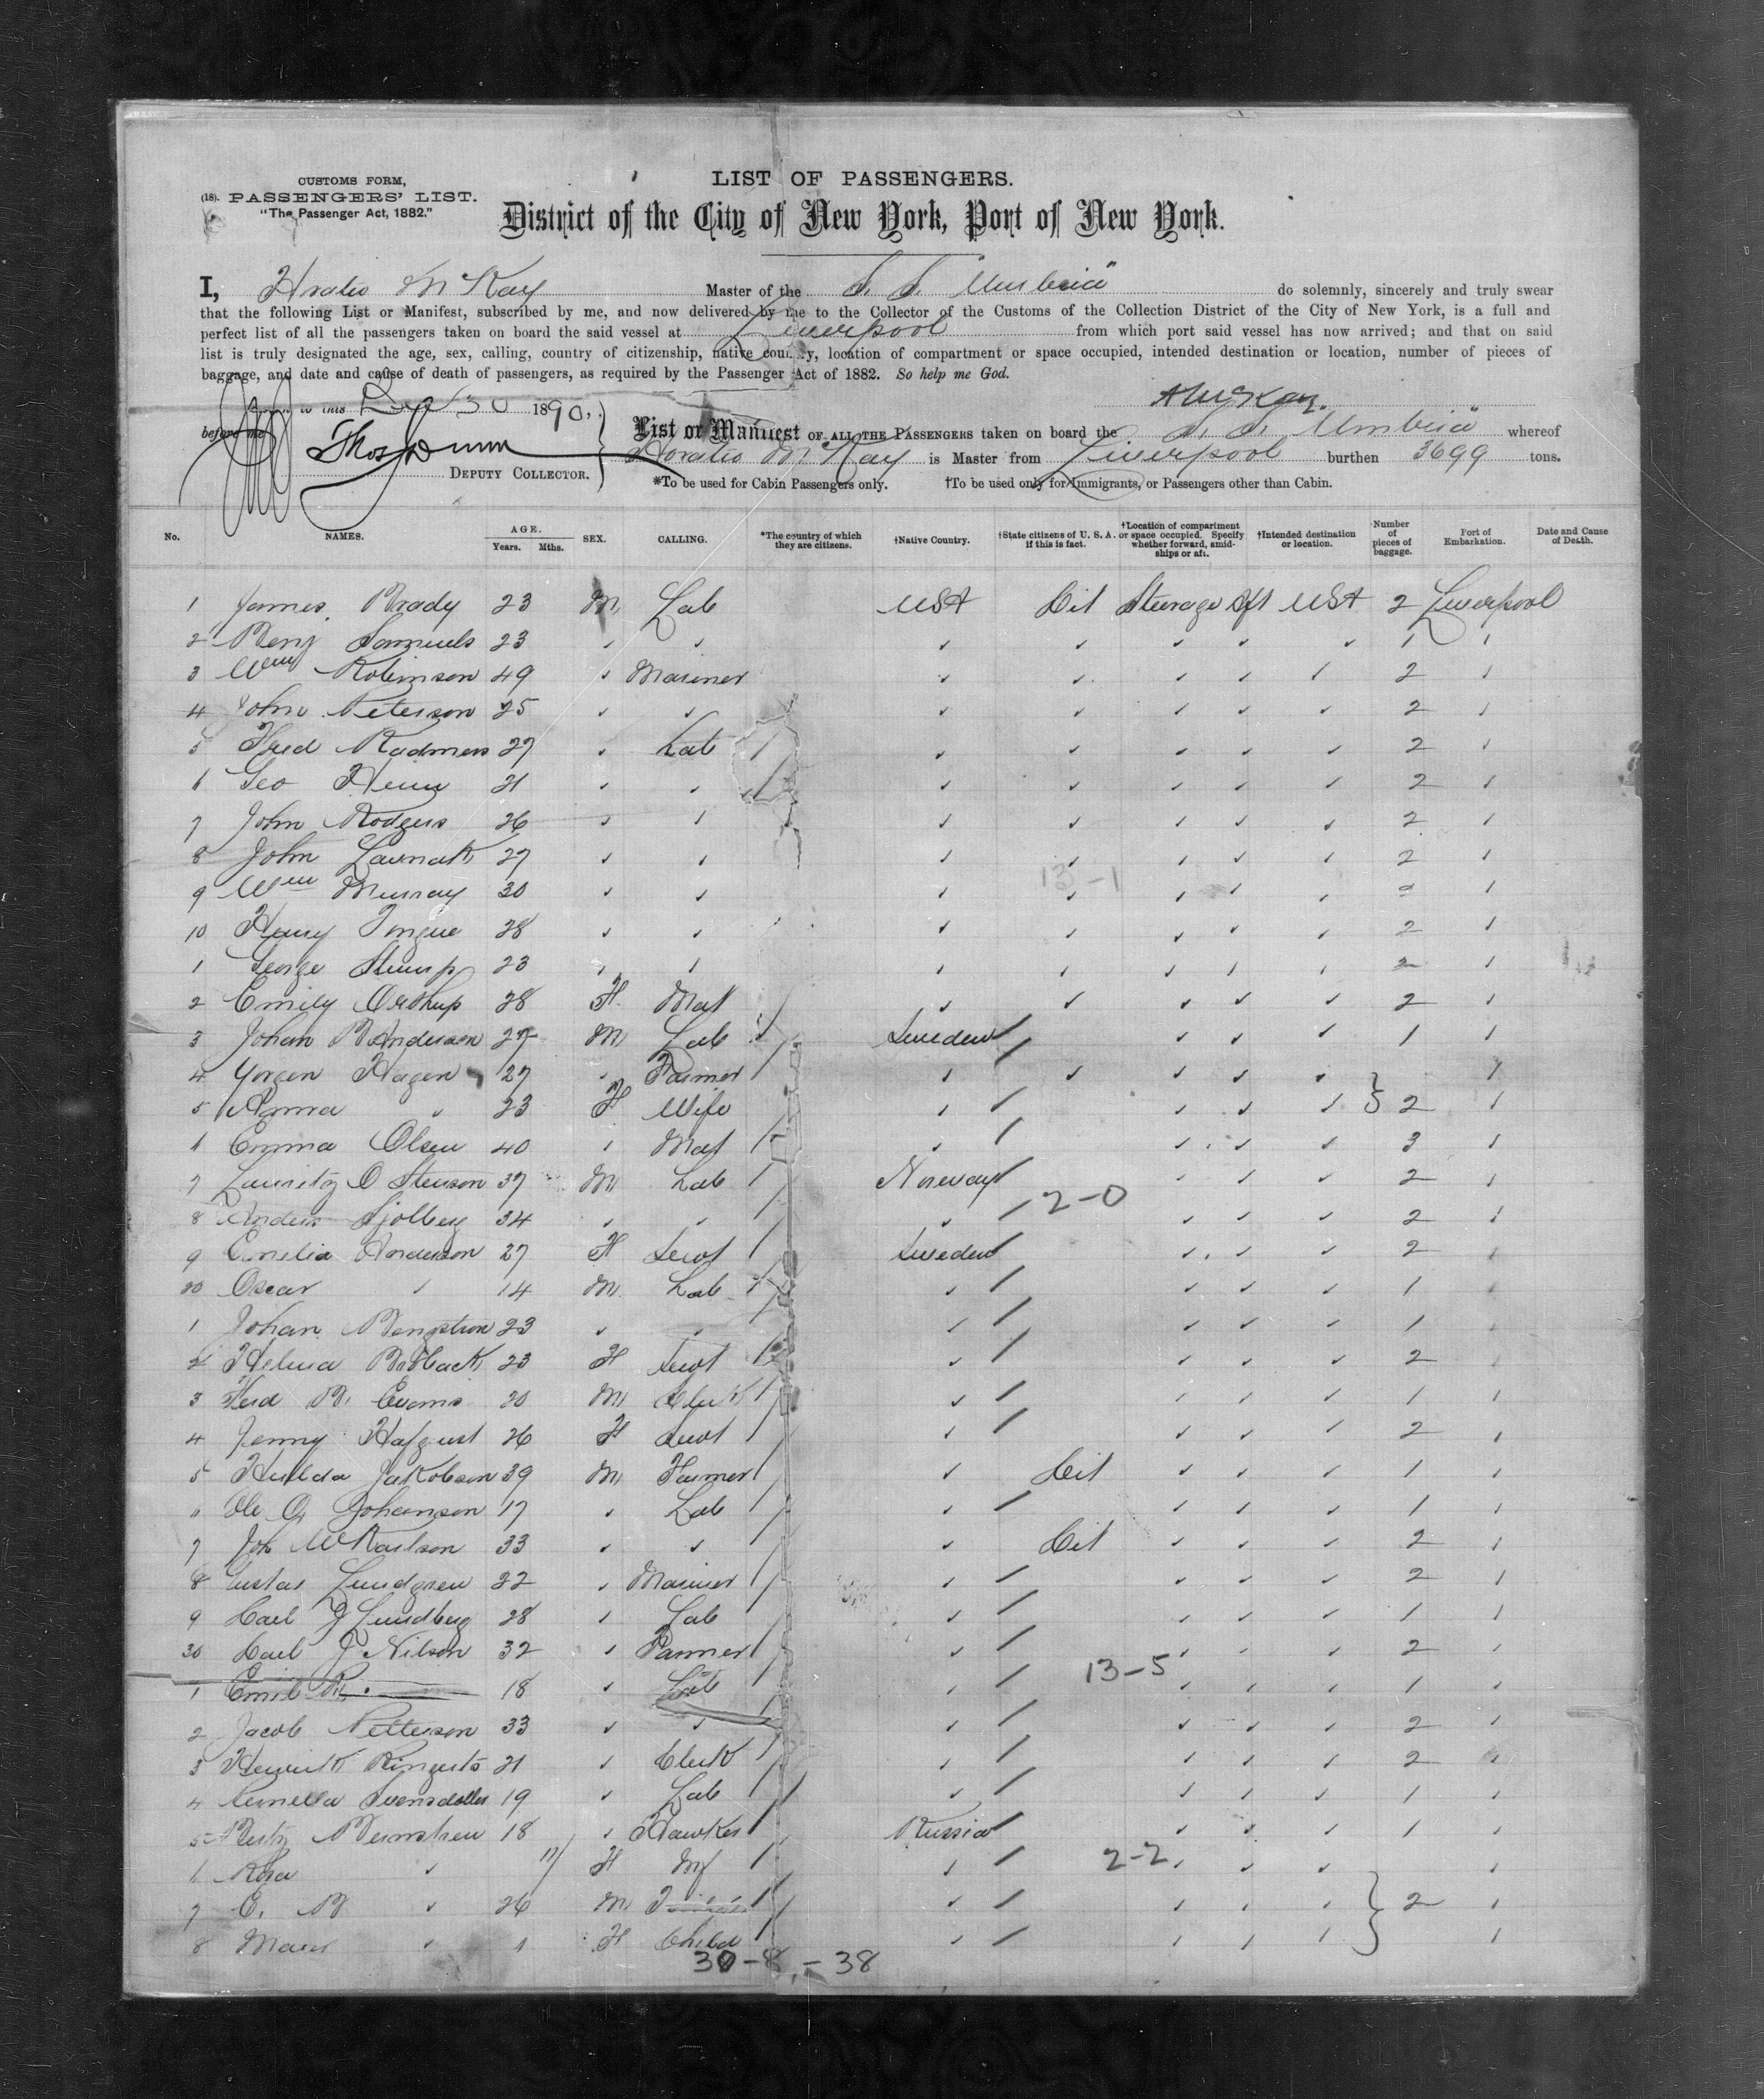 CUSTOMS FORM,
(18). PASSENGERS' LIST.
"The Passenger Act, 1882."
LIST OF PASSENGERS.
District of the City of New York, Port of New York.
I, Horatio McKay Master of the S. S. Umbria" do solemnly, sincerely and truly swear
that the following List or Manifest, subscribed by me, and now delivered by me to the Collector of the Customs of the Collection District of the City of New York, is a full and
perfect list of all the passengers taken on board the said vessel at Liverpool from which port said vessel has now arrived; and that on said
list is truly designated the age, sex, calling, country of citizenship, native country, location of compartment or space occupied, intended destination or location, number of pieces of
baggage, and date and cause of death of passengers, as required by the Passenger Act of 1882. So help me God.
HMcKay.
to this 30 1890,
before me
Thos Dunn
DEPUTY COLLECTOR.
List or Manifest OF ALL THE PASSENGERS taken on board the S. S. Umbria" whereof
Horatio McKay is Master from Liverpool burthen 3699 tons.
*To be used for Cabin Passengers only. †To be used only for Immigrants, or Passengers other than Cabin.
No. NAMES. AGE. Years. Mths. SEX. CALLING. *The country of which they are citizens. †Native Country. †State citizens of U. S. A. if this is fact. †Location of compartment or space occupied. Specify whether forward, amidships or aft. †Intended destination or location. Number of pieces of baggage. Port of Embarkation. Date and Cause of Death.
1 James Brady 23 M Lab USA Cit Steerage Aft USA 2 Liverpool
2 Benj Samuels 23 1
3 Wm Robinson 49 Mariner 2
4 John Peterson 25 2
5 Fred Radmers 27 Lab 2
6 Geo Henry 21 2
7 John Rodgers 26 2
8 John 27 2
9 Wm Murray 30
10 Henry Tongue 28 2
1 George Stump 23 2
2 Emily 28 F Mat 2
3 Johan B Anderson 27 M Lab Sweden 1
4 Yorgen Hagen 27 Farmer
5 Anna 23 F Wife 2
6 Emma Olsen 40 Mat 3
7 Lauritz O Stenson 37 M Lab Norway 2
8 Anders Sjolberg 34 2-0 2
9 Emelia Anderson 27 F Servt Sweden 2
20 Oscar 14 M Lab 1
1 Johan 23 1
2 Helma 23 F Servt 2
3 Fred B. Evans 20 M Clerk 1
4 Jenny 26 F Servt 2
5 Hulda Jakobson 39 M Farmer Cit 1
6 Ole G Johanson 17 Lab 1
7 Joh W Karlson 33 Cit 2
8 Gustav Lundgren 22 Mariner 2
9 Carl J Lundberg 28 Lab 1
30 Carl J. Nilson 32 Farmer 2
13-5
1 Emil 18 Lab 1
2 Jacob Petterson 33 2
3 21 Clerk 2
4 Svensdotter 19 Lab 1
5 18 Hawker Russia 1
6 Rosa 11 F Wf 2-2
7 26 M 2
8 1 F Child
30-8-38